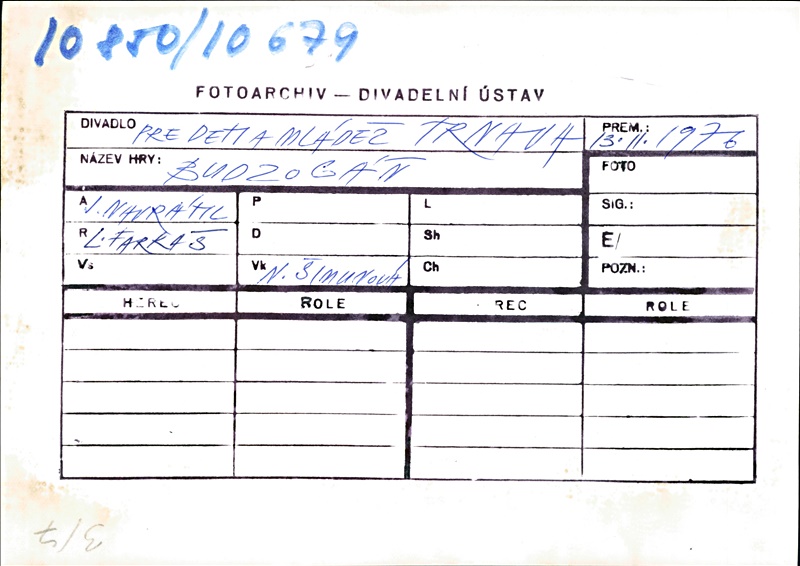 10 850/10 679
FOTOARCHIV — DIVADELNÍ ÚSTAV
DIVADLO PRE DETI A MLÁDEŽ TRNAVA
PREM.: 13. II. 1976
NÁZEV HRY: BUDZOGÁŇ
FOTO
A J. NAVRÁTIL
P
L
SIG.:
R L. FARKAŠ
D
Sh
E/
Vs
Vk N. ŠIMUNOVÁ
Ch
POZN.:
HEREC ROLE REC ROLE
3/7